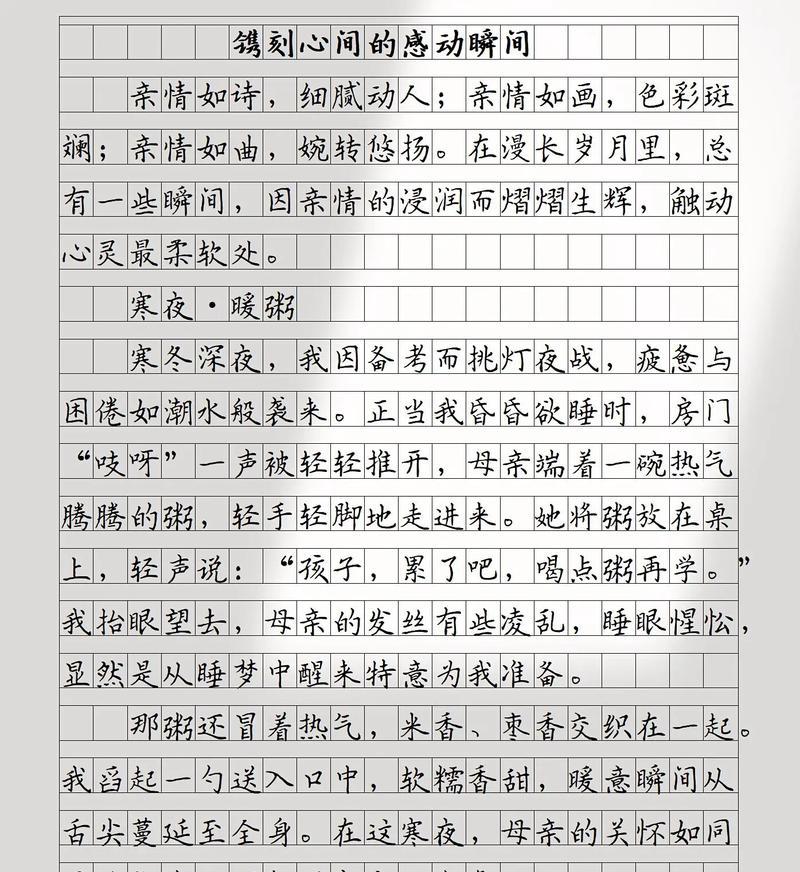 镌刻心间的感动瞬间
亲情如诗，细腻动人；亲情如画，色彩斑
斓；亲情如曲，婉转悠扬。在漫长岁月里，总
有一些瞬间，因亲情的浸润而熠熠生辉，触动
心灵最柔软处。
寒夜·暖粥
寒冬深夜，我因备考而挑灯夜战，疲惫与
困倦如潮水般袭来。正当我昏昏欲睡时，房门
“吱呀”一声被轻轻推开，母亲端着一碗热气
腾腾的粥，轻手轻脚地走进来。她将粥放在桌
上，轻声说：“孩子，累了吧，喝点粥再学。”
我抬眼望去，母亲的发丝有些凌乱，睡眼惺忪，
显然是从睡梦中醒来特意为我准备。
那粥还冒着热气，米香、枣香交织在一起。
我舀起一勺送入口中，软糯香甜，暖意瞬间从
舌尖蔓延至全身。在这寒夜，母亲的关怀如同